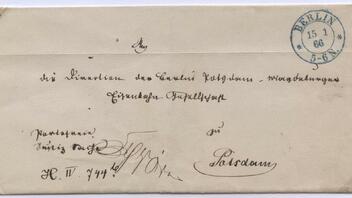 BERLIN
15 1
66
* 5-6N. *
An
die Direction der Berlin Potsdam-Magdeburger
Eisenbahn Gesellschaft
zu
Potsdam
Portofreie
Justiz Sache
H. II 744